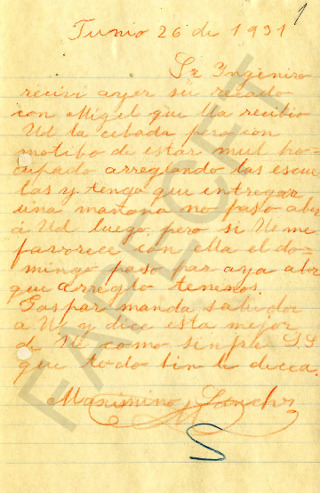 1
Junio 26 de 1931
Sr Ingeniro
recivi ayer su recado
con Migel que lla recibio
Ud la cebada pero con
motibo de estar mui hocu-
pado arreglando las escue
las y tengo que entregar
una mañana no paso aber
á Ud luego, pero si Ud me
faborece con ella el do-
mingo paso par aya aber
que arreglo tenemos.
Gaspar manda saludor
a Ud y dice esta mejor
de Ud como sinpre S.S
que todo bin le decea.
Maximino Sanches
FAPECFT